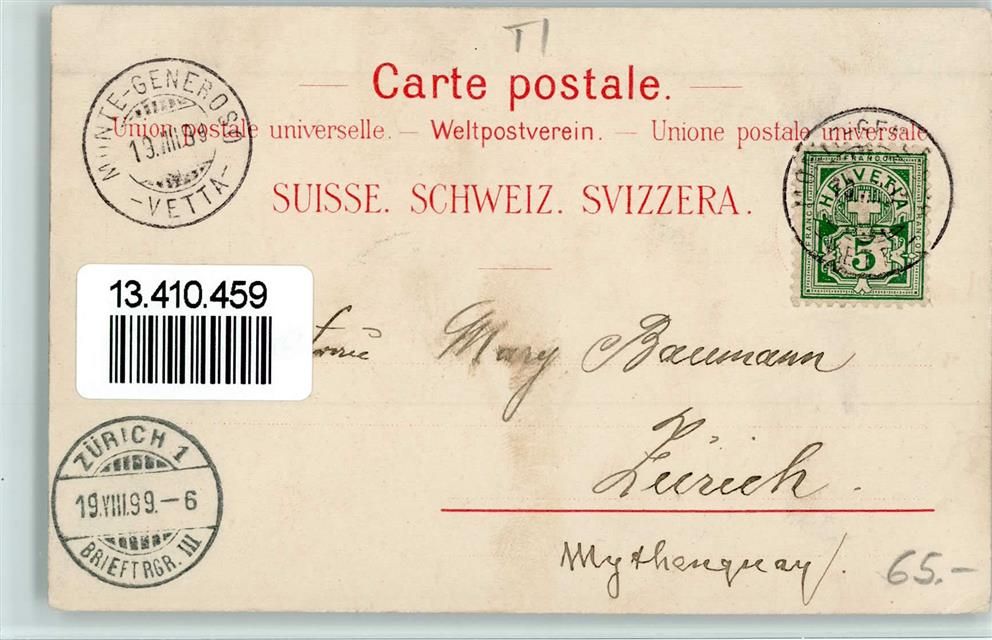 T1
Carte postale.
Union postale universelle. — Weltpostverein. — Unione postale universale
SUISSE. SCHWEIZ. SVIZZERA.
MONTE-GENEROSO
19.VIII.99
-VETTA-
FRANCO
HELVETIA
5
13.410.459
Frau Mary Baumann
Zürich.
Mythenquay
ZÜRICH 1
19.VIII.99.-6
BRIEFTRGR. III
65.-